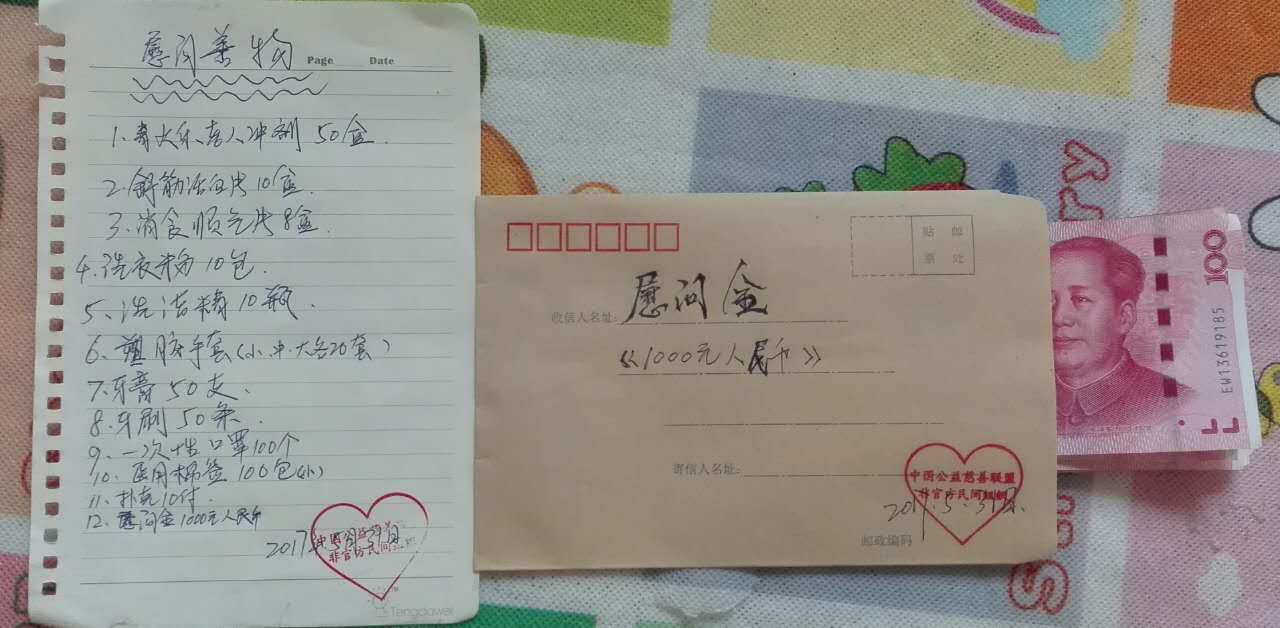 慰问善物
Page Date
1、寿火乐喜人冲剂 50盒.
2、舒筋活血片10盒.
3、消食顺气片8盒.
4、洗衣粉10包.
5、洗洁精10瓶、
6、塑胶手套(小.中.大各20套)
7、牙膏50支、
8、牙刷50条、
9、一次性口罩100个
10、医用棉签100包(小)
11、扑克10付.
12、慰问金1000元人民币
2017
非官方民间
Tengdawei
贴 邮
票 处
收信人名址:慰问金
《1000元人民币》
寄信人名址:
中国公益慈善联盟
非官方民间组织
2017.5.29日.
邮政编码
100
EW13619185